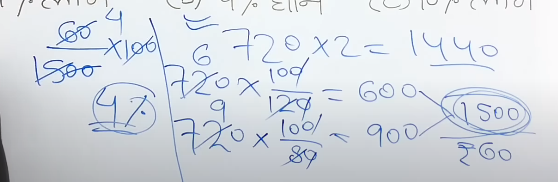 (b) 4% हानि
60 4
—— × 100
1500
4%
720 × 2 = 1440
6
720 × 100/120 = 600
9
720 × 100/80 = 900
1500
₹60